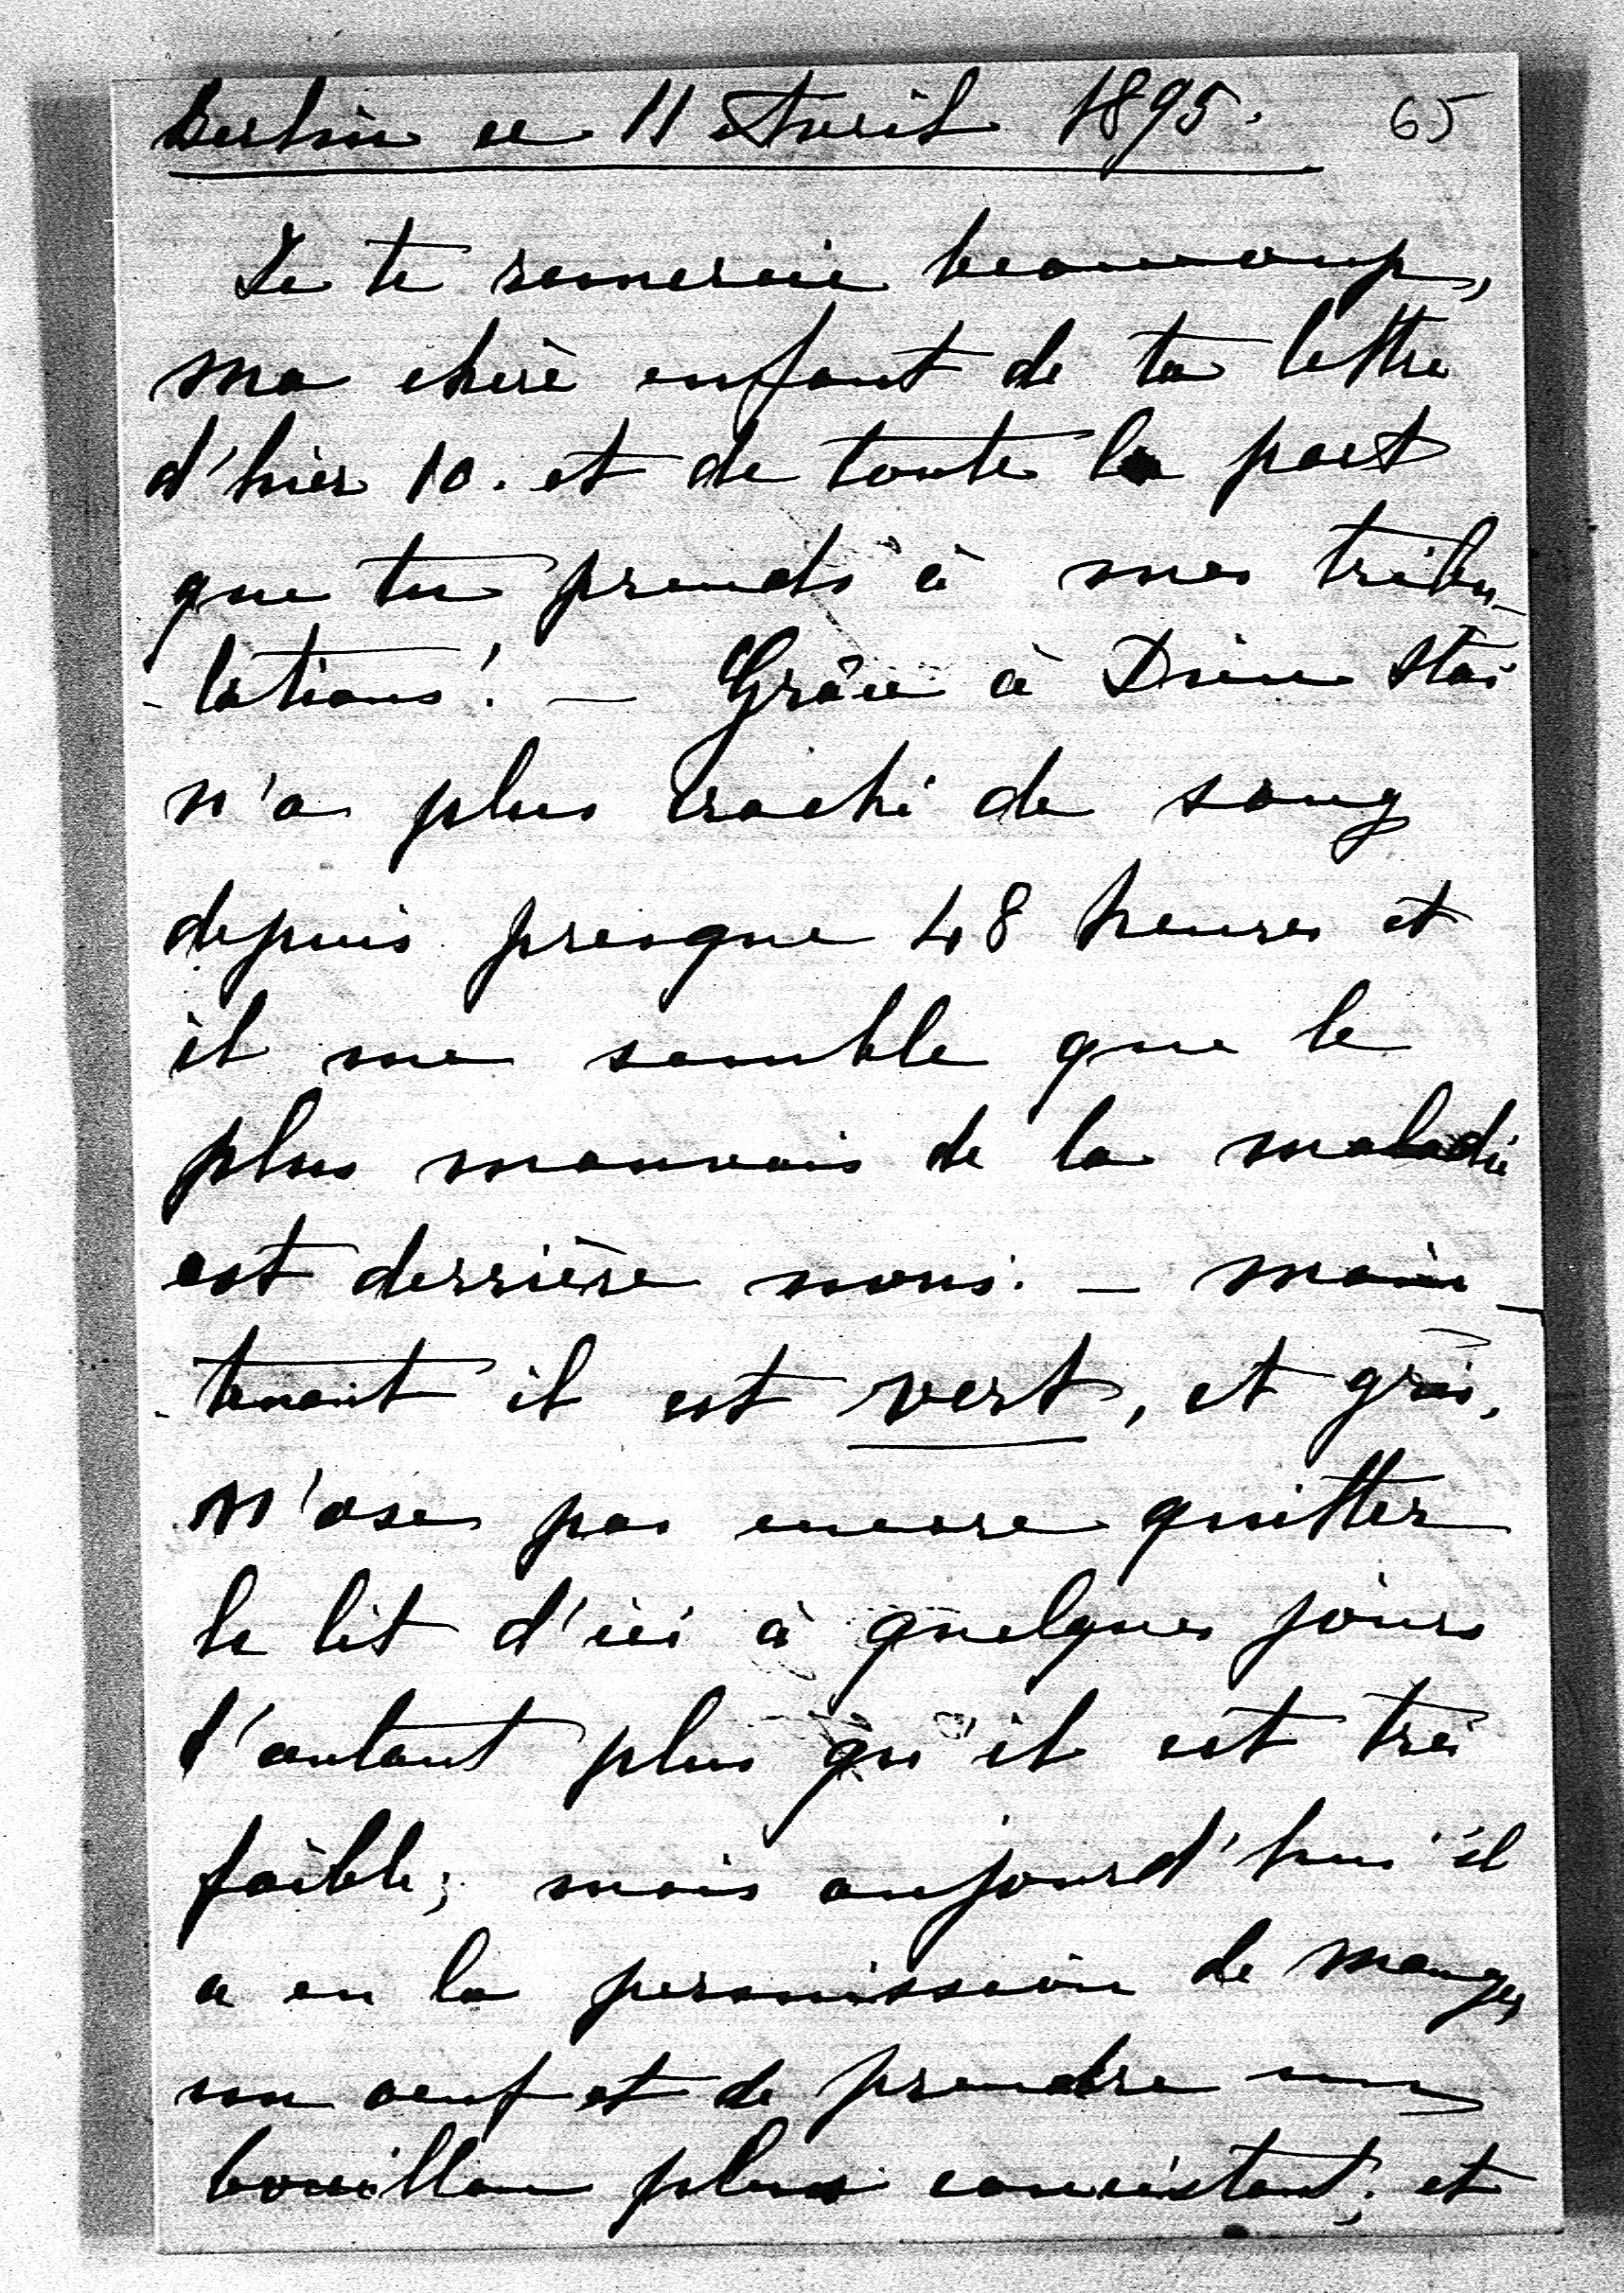 Berlin ce 11 Avril 1895. 65
Je te remercie beaucoup,
ma chère enfant de ta lettre
d'hier 10. et de toute la part
que tu prends à mes tribu-
-lations! — Grâce à Dieu Stas
n'a plus craché de sang
depuis presque 48 heures et
il me semble que le
plus mauvais de la maladie
est derrière nous. — main-
-tenant il est vert, et gris,
n'ose pas encore quitter
le lit d'ici à quelques jours
d'autant plus qu'il est très
faible; mais aujourd'hui il
a eu la permission de manger
un oeuf et de prendre un
bouillon plus consistant; et